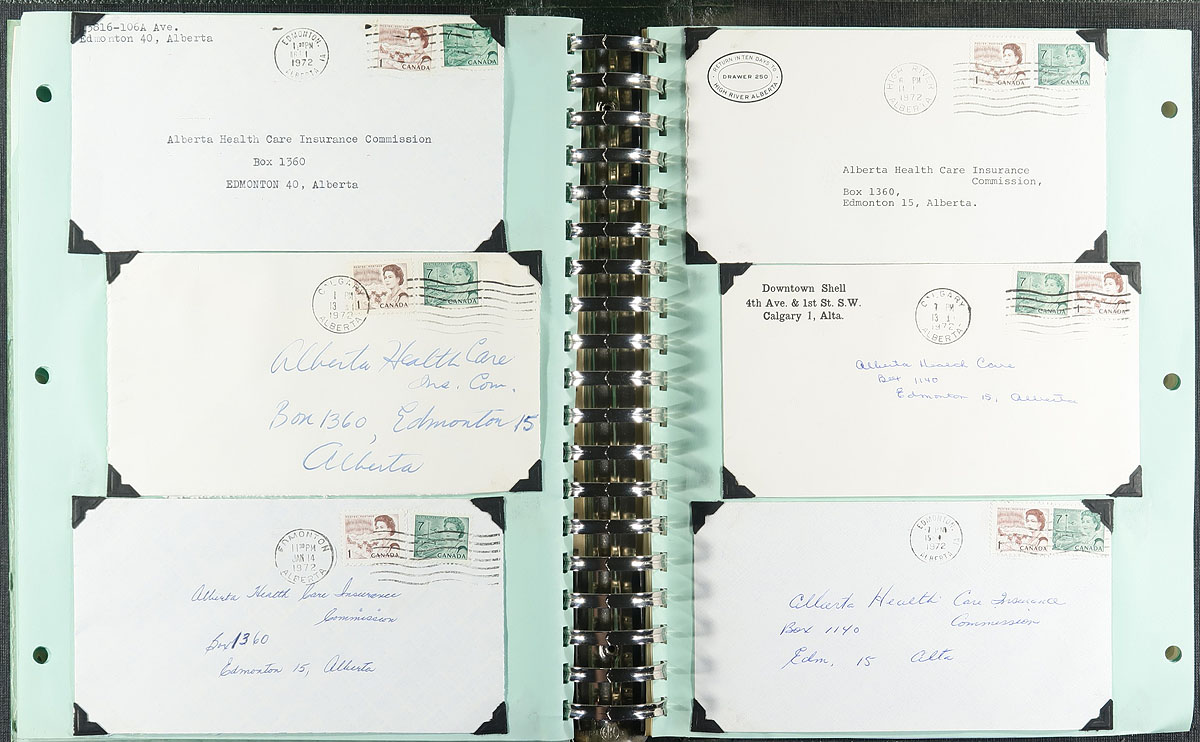 5816-106A Ave.
Edmonton 40, Alberta
EDMONTON
PM
1972
ALBERTA
1 CANADA
7 CANADA
Alberta Health Care Insurance Commission
Box 1360
EDMONTON 40, Alberta
CALGARY
1 PM
13 1
1972
ALBERTA
1 CANADA
7 CANADA
Alberta Health Care
Ins. Com.
Box 1360, Edmonton 15
Alberta
EDMONTON
11 PM
JAN 14
1972
ALBERTA
1 CANADA
7 CANADA
Alberta Health Care Insurance
Commission
Box 1360
Edmonton 15, Alberta
RETURN IN TEN DAYS TO
DRAWER 250
HIGH RIVER ALBERTA
HIGH RIVER
PM
1972
ALBERTA
1 CANADA
7 CANADA
Alberta Health Care Insurance
Commission,
Box 1360,
Edmonton 15, Alberta.
Downtown Shell
4th Ave. & 1st St. S.W.
Calgary 1, Alta.
CALGARY
7 PM
13 1
1972
ALBERTA
7 CANADA
1 CANADA
Alberta Health Care
Box 1140
Edmonton 15, Alberta
EDMONTON
PM
15
1972
ALBERTA
1 CANADA
7 CANADA
Alberta Health Care Insurance
Commission
Box 1140
Edm. 15 Alta